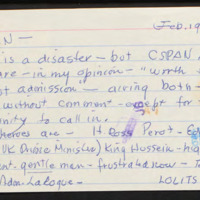 Feb. 19
N —
is a disaster — but CSPAN
are — in my "opinion" — "worth
admission" — airing both —
without comment — except for
unity to call in.
heroes are — H Ross Perot —
(UK Prime Minister) King Hussein —
ent-gentle man — frustrated now —
Adm. LaRoque — LOLITS